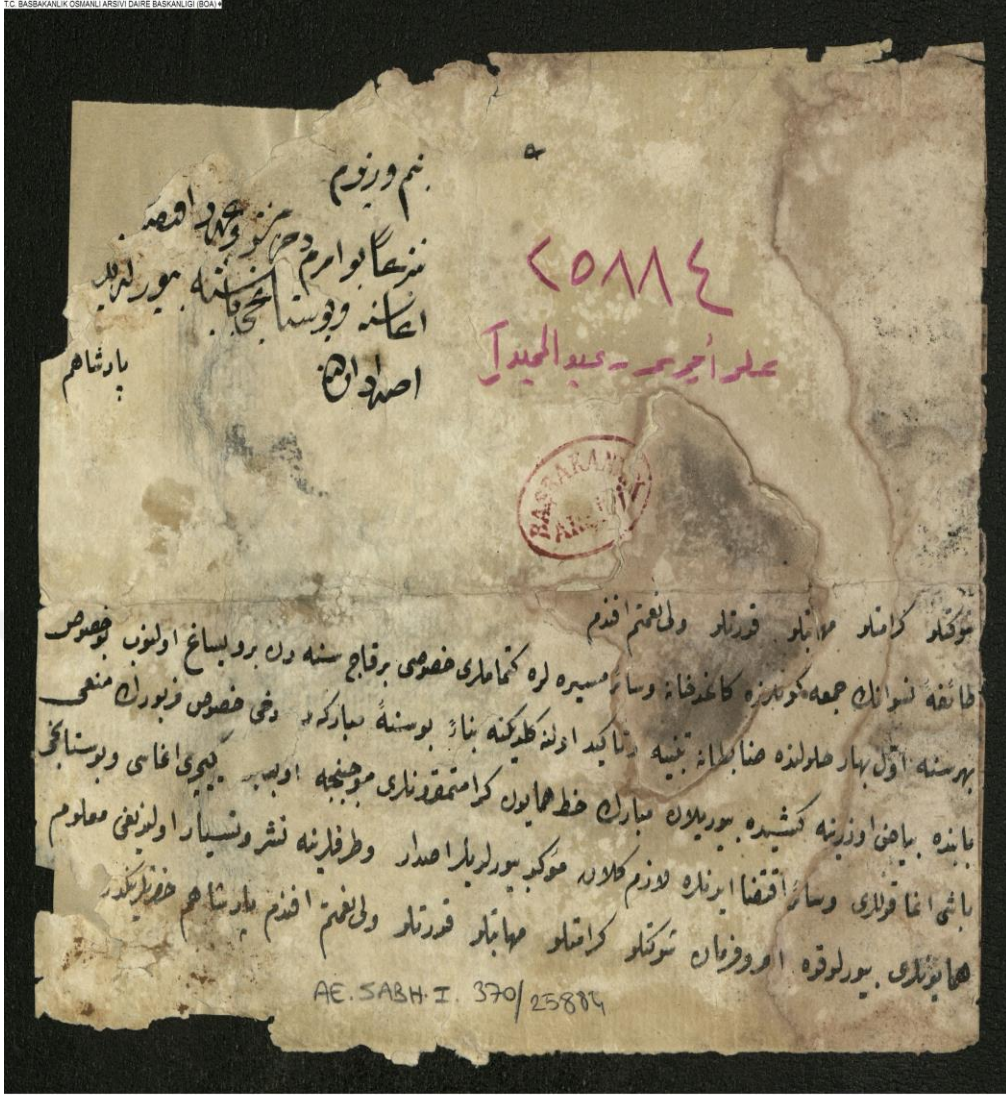 T.C. BAŞBAKANLIK OSMANLI ARŞİVİ DAİRE BAŞKANLIĞI (BOA)
بنم وزیرم
بو امرم
اغاسنه وبوستانجی باشیه بیورلدیلر
اصدار اولنه
پادشاهم
٢٥٨٨٤
علی أمیری - عبد الحمید
BAŞBAKANLIK
شوکتلو کرامتلو مهابتلو قدرتلو ولی نعمتم افندم
طائفۀ نسوانك جمعه کونلرنده کاغدخانه وسائر مسیره لره کتماملری خصوصی برقاج سنه دن برو یساغ اولنوب بو خصوص
بهر سنه اول بهار حلولنده ضابطانه تنبیه وتاکید اولنه کلدیکنه بناءً بو سنۀ مبارکه ده دخی خصوص مزبورك منعی
بابنده بیاض اوزرینه کشیده بیوریلان مبارك خط همایون کرامتمقرونلری موجبنجه یکیچری اغاسی وبوستانجی
باشی اغا قوللری وسائر اقتضا ایدنلره لازم کلان مؤکد بیورلدیلر اصدار وطرفلرینه نشر وتسیار اولندیغی معلوم
همایونلری بیورلدقده امر وفرمان شوکتلو کرامتلو مهابتلو قدرتلو ولی نعمتم افندم پادشاهم حضرتلریکدر
AE.SABH.I. 370/25884